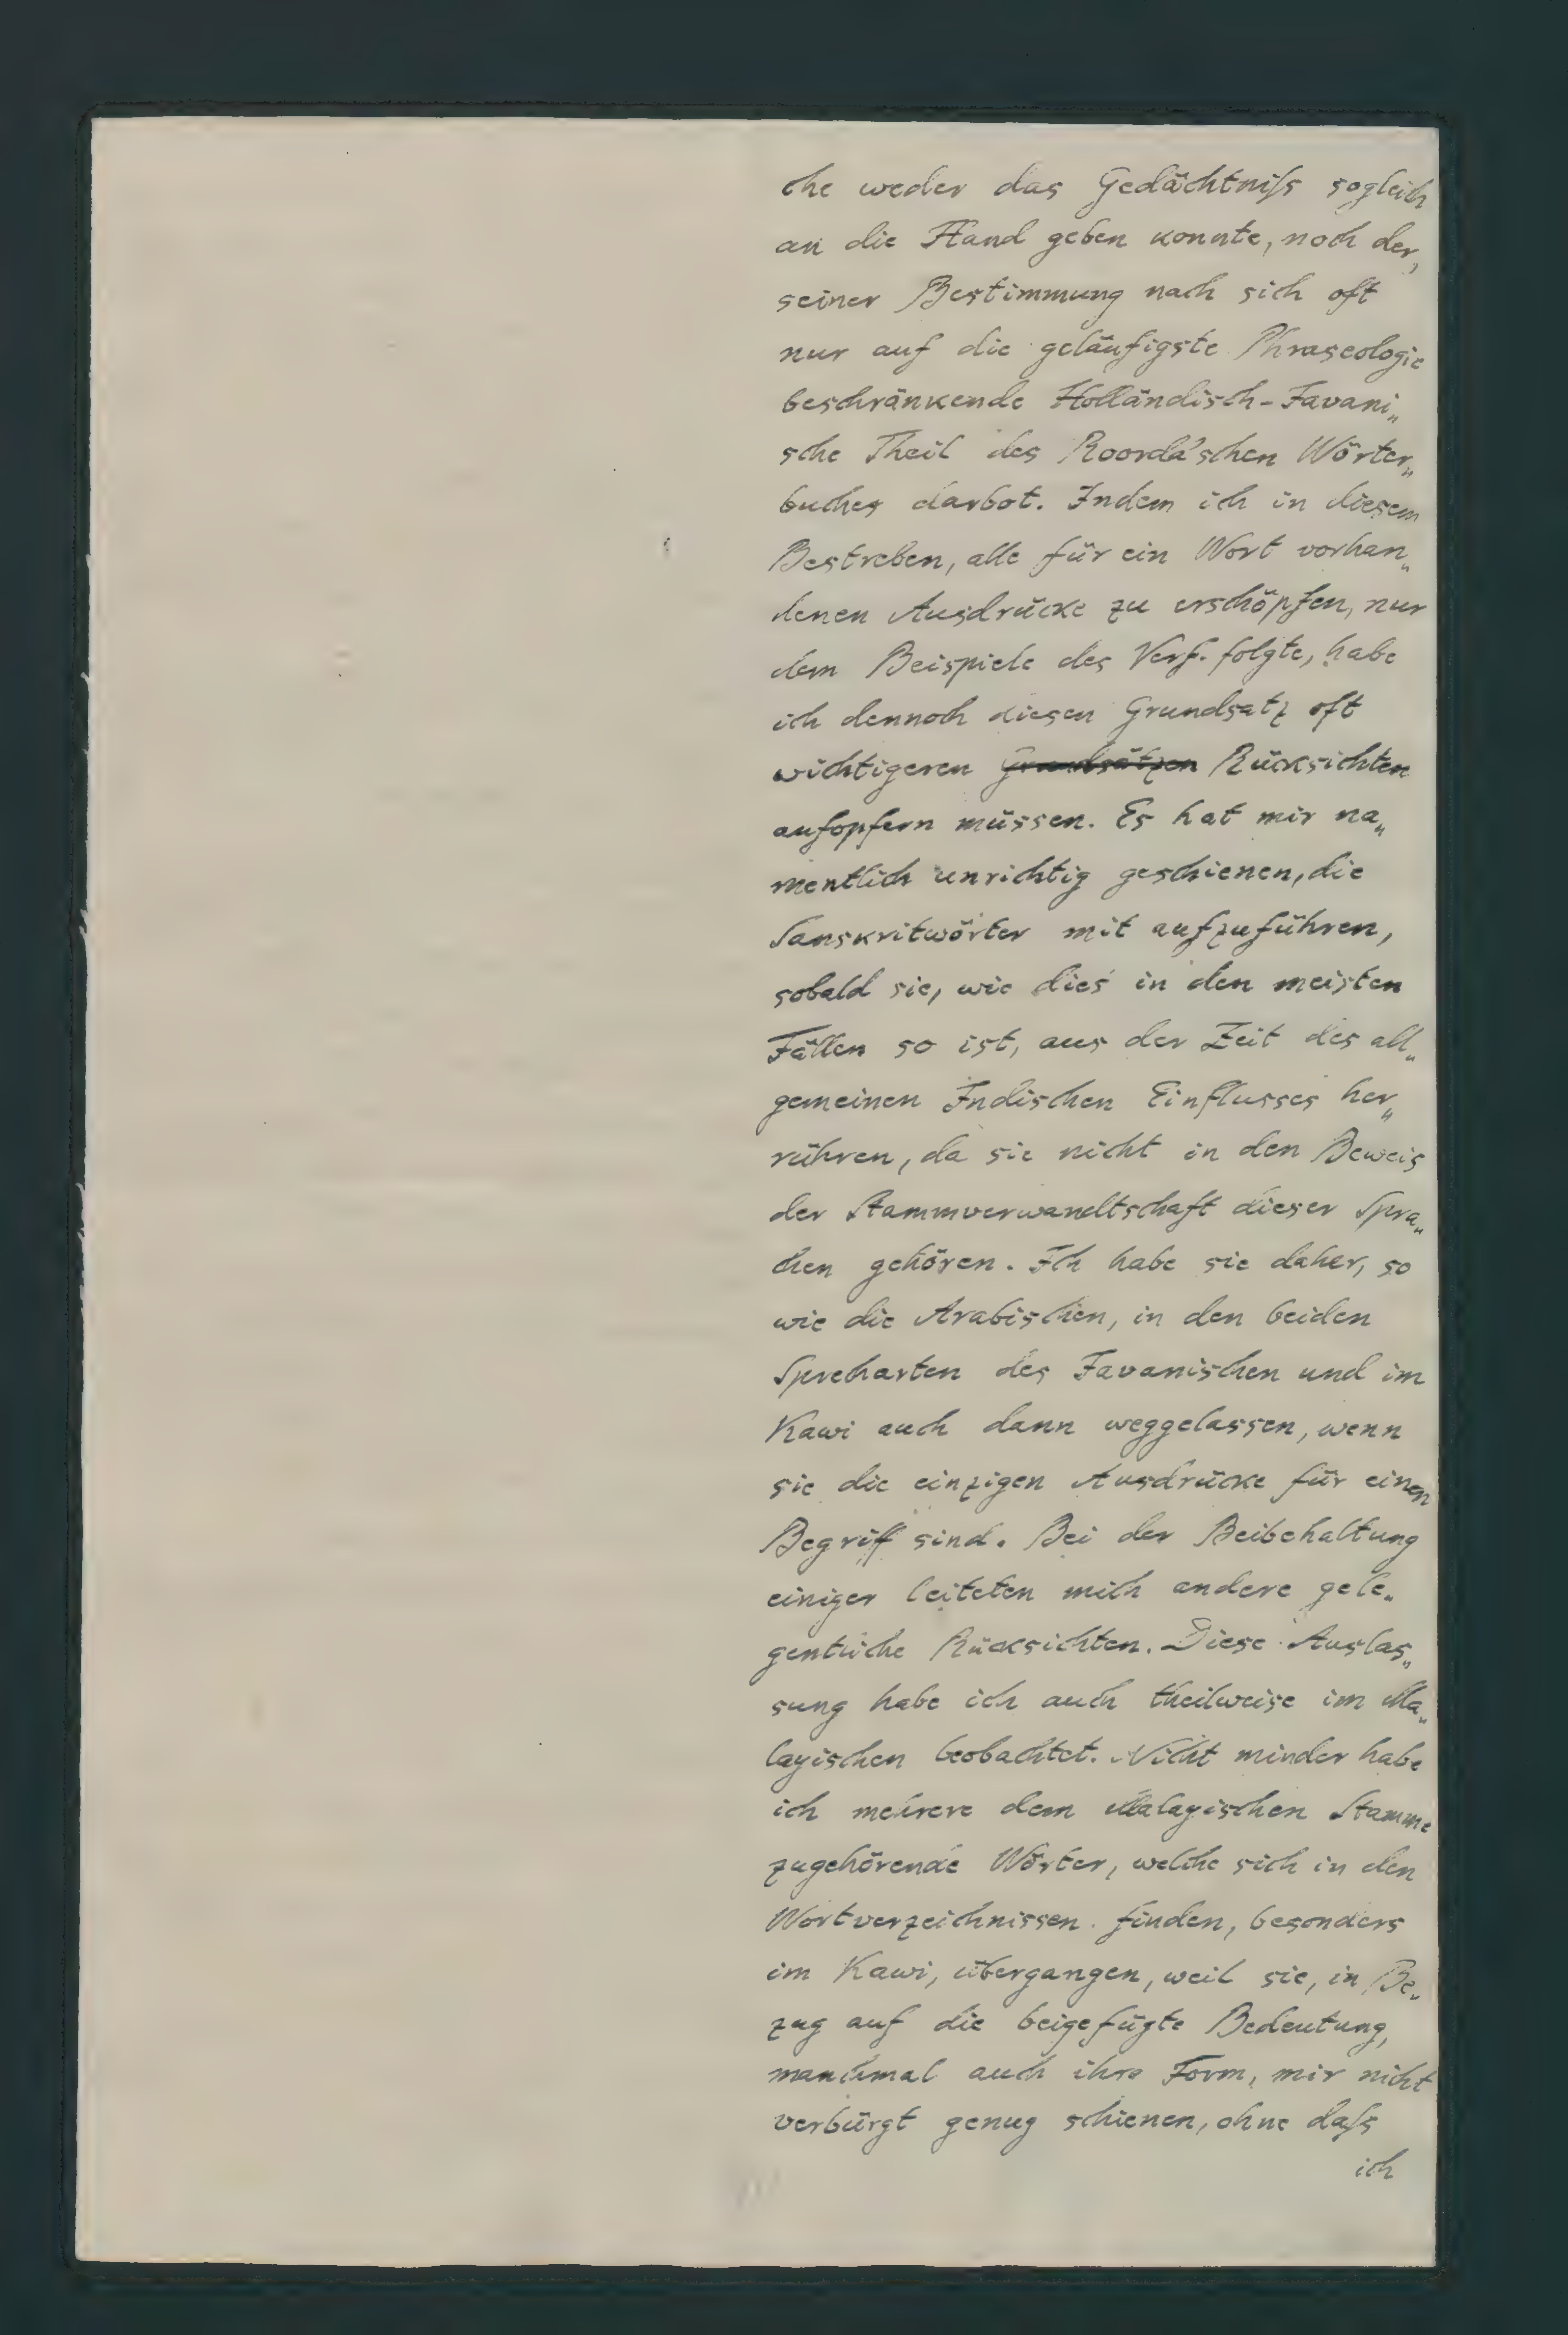 che weder das Gedächtniſs sogleich
an die Hand geben konnte, noch der,
seiner Bestimmung nach sich oft
nur auf die geläufigste Phraseologie
beschränkende Holländisch-Javani„
sche Theil des Roorda'schen Wörter„
buches darbot. Indem ich in diesem
Bestreben, alle für ein Wort vorhan„
denen Ausdrücke zu erschöpfen, nur
dem Beispiele des Verf. folgte, habe
ich dennoch diesen Grundsatz oft
wichtigeren Grundsätzen Rücksichten
aufopfern müssen. Es hat mir na„
mentlich unrichtig geschienen, die
Sanskritwörter mit aufzuführen,
sobald sie, wie dies in den meisten
Fällen so ist, aus der Zeit des all„
gemeinen Indischen Einflusses her„
rühren, da sie nicht in den Beweis
der Stammverwandtschaft dieser Spra„
chen gehören. Ich habe sie daher, so
wie die Arabischen, in den beiden
Sprecharten des Javanischen und im
Kawi auch dann weggelassen, wenn
sie die einzigen Ausdrücke für einen
Begriff sind. Bei der Beibehaltung
einiger leiteten mich andere gele„
gentliche Rücksichten. Diese Auslas„
sung habe ich auch theilweise im Ma„
layischen beobachtet. Nicht minder habe
ich mehrere dem Malayischen Stamme
zugehörende Wörter, welche sich in den
Wortverzeichnissen finden, besonders
im Kawi, übergangen, weil sie, in Be„
zug auf die beigefügte Bedeutung,
manchmal auch ihre Form, mir nicht
verbürgt genug schienen, ohne daſs
ich